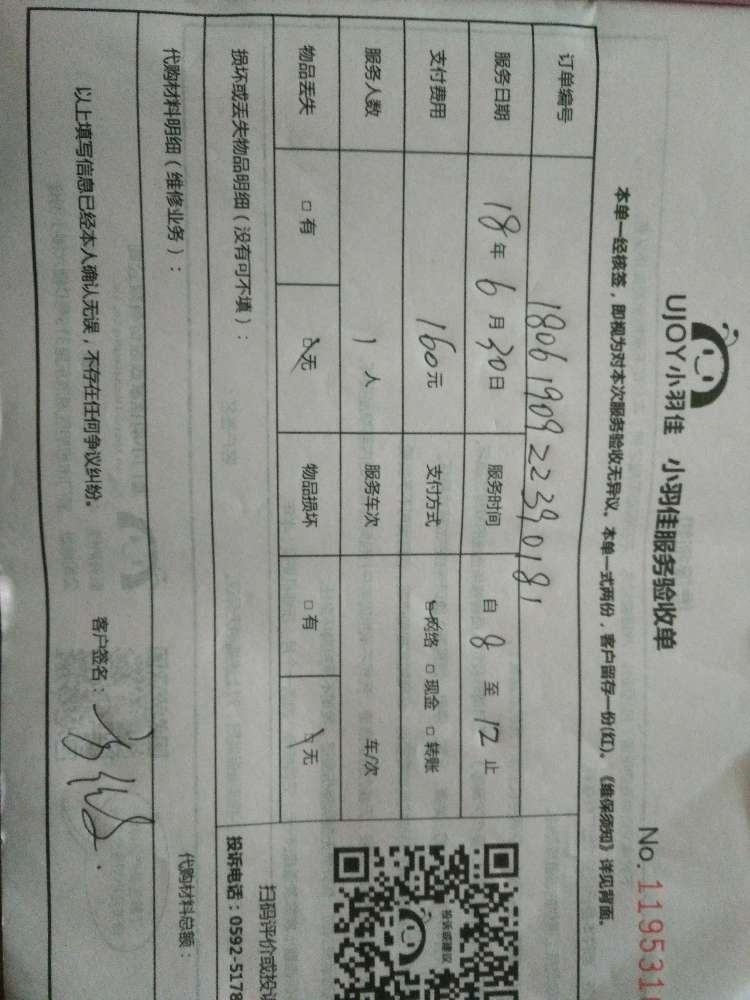 UJOY小羽佳 小羽佳服务验收单
No. 119531
本单一经核签，即视为对本次服务验收无异议。本单一式两份，客户留存一份(红)。《维保须知》详见背面。
订单编号 1806190922390181
服务日期 18年 6月 30日 服务时间 自 8 至 12 止
支付费用 160元 支付方式 网络 □ 现金 □ 转账
服务人数 1 人 服务车次 车/次
物品丢失 □ 有 □ 无 物品损坏 □ 有 □ 无
投诉或建议
扫码评价或投诉
损坏或丢失物品明细（没有可不填）：
投诉电话：0592-5178
代购材料明细（维修业务）：
代购材料总额：
以上填写信息已经本人确认无误，不存在任何争议纠纷。
客户签名：